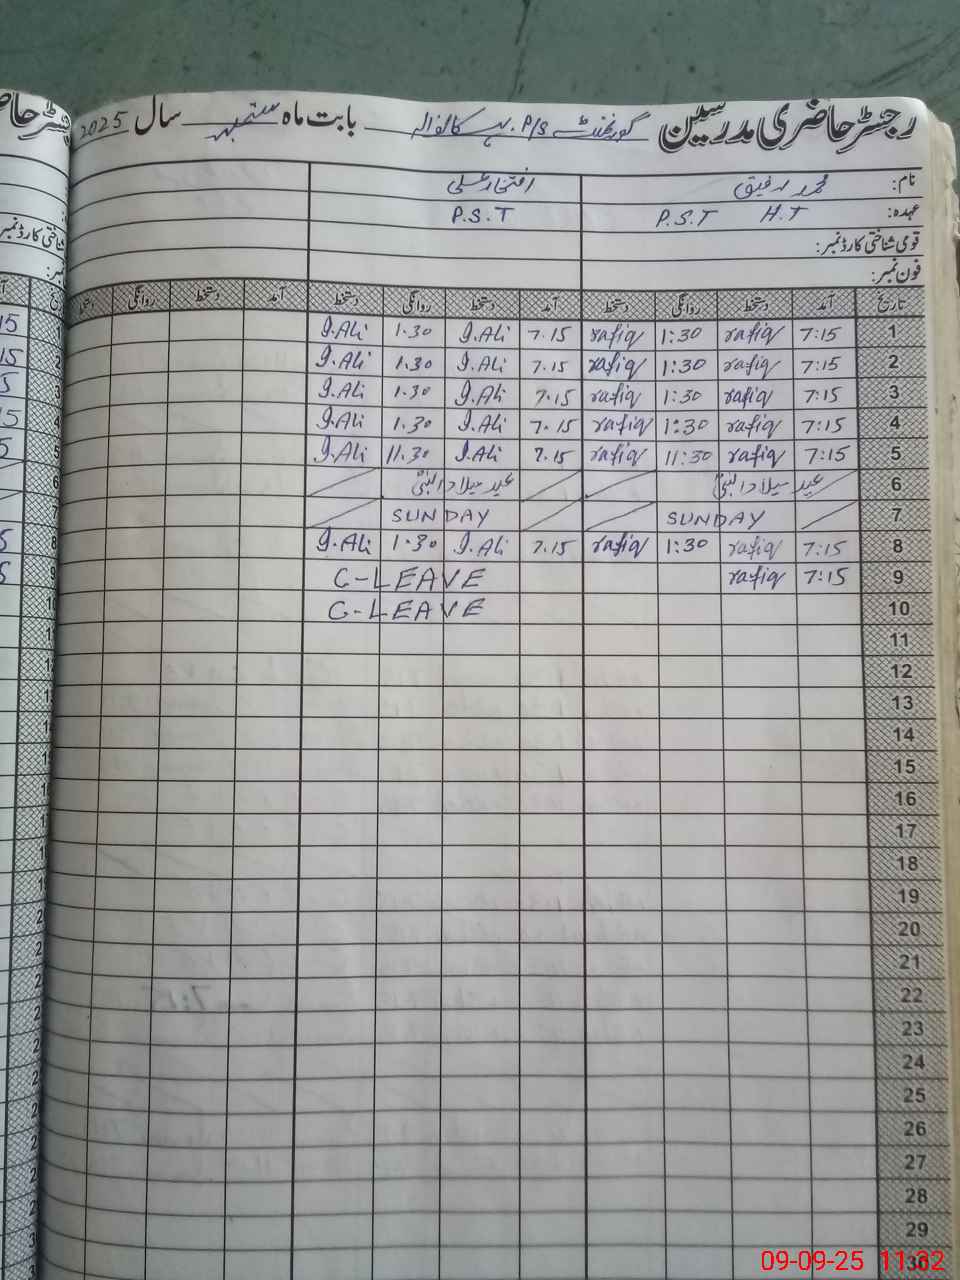 رجسٹر حاضری مدرسین گورنمنٹ P/S بابت ماہ ستمبر سال 2025
نام: محمد رفیق افتخار علی
عہدہ: P.S.T H.T P.S.T
قومی شناختی کارڈ نمبر:
فون نمبر:
تاریخ آمد دستخط روانگی دستخط آمد دستخط روانگی دستخط آمد دستخط روانگی دستخط
1 7:15 rafiq 1:30 rafiq 7.15 I.Ali 1.30 I.Ali
2 7:15 rafiq 1:30 rafiq 7.15 I.Ali 1.30 I.Ali
3 7:15 rafiq 1:30 rafiq 7.15 I.Ali 1.30 I.Ali
4 7:15 rafiq 1:30 rafiq 7.15 I.Ali 1.30 I.Ali
5 7:15 rafiq 11:30 rafiq 7.15 I.Ali 11.30 I.Ali
6 عید میلاد النبیؐ عید میلاد النبیؐ
7 SUNDAY SUNDAY
8 7:15 rafiq 1:30 rafiq 7.15 I.Ali 1.30 I.Ali
9 7:15 rafiq C-LEAVE
10 C-LEAVE
11
12
13
14
15
16
17
18
19
20
21
22
23
24
25
26
27
28
29
30
09-09-25 11:32